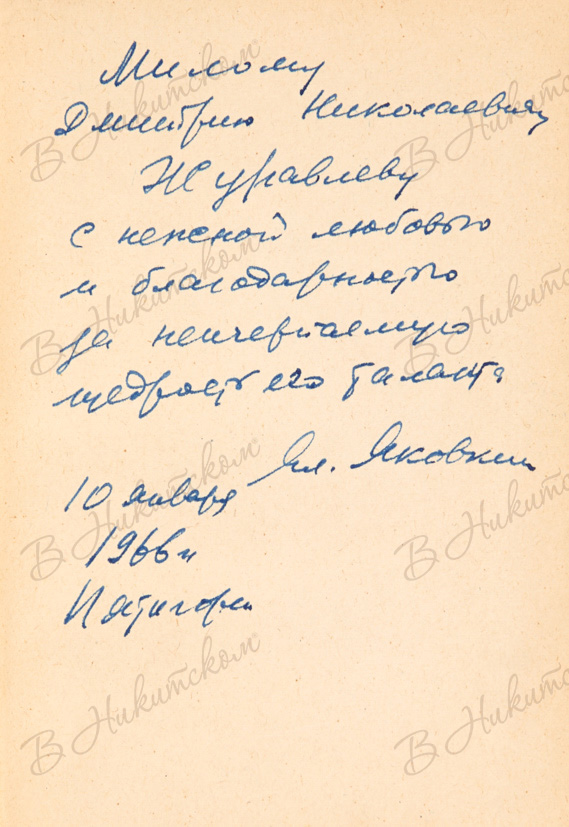 Милому
Дмитрию Николаевичу
Журавлеву
с нежной любовью
и благодарностью
за неисчерпаемую
щедрость его таланта
Яковкин
10 января
1966 г
Пятигорск
В Никитском
В Никитском
В Никитском
В Никитском
В Никитском
В Никитском
В Никитском
В Никитском